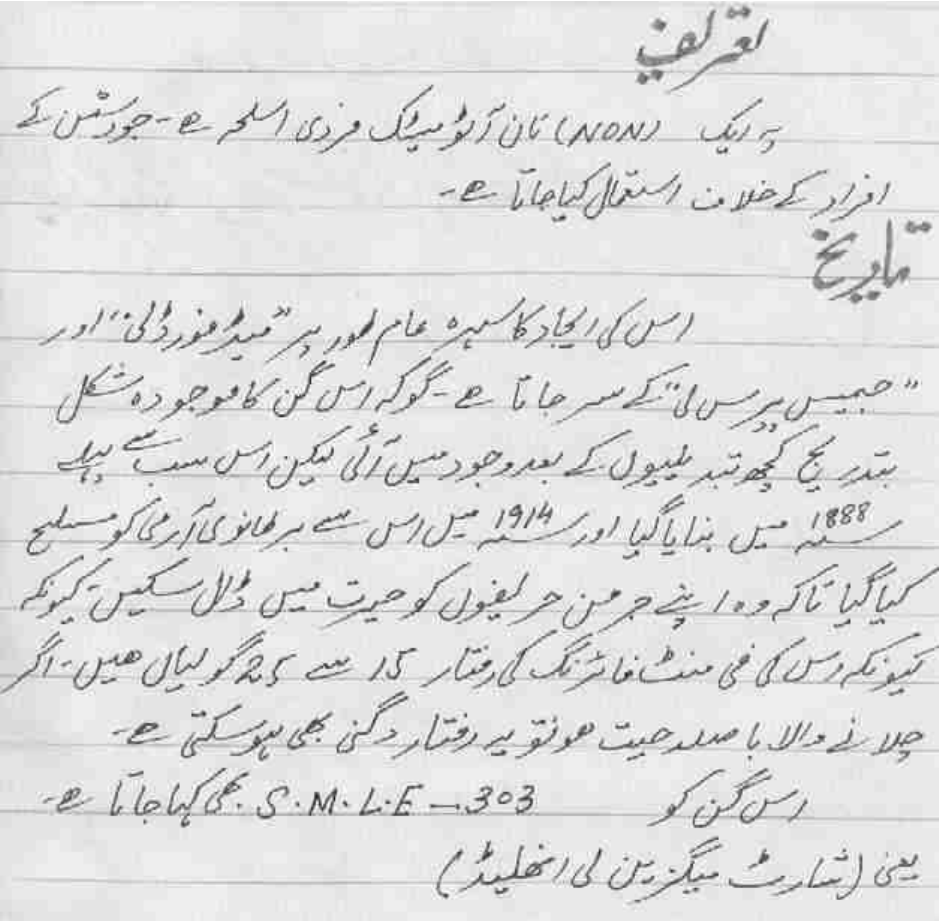 تعریف
یہ ایک (NON) نان آٹومیٹک فردی اسلحہ ہے - جو دشمن کے
افراد کے خلاف استعمال کیا جاتا ہے -
تاریخ
اس کی ایجاد کا سہرہ عام طور پر "میڈ فورڈ لی" اور
"جیمس پیرس لی" کے سر جاتا ہے - گو کہ اس گن کا موجودہ شکل
بتدریج کچھ تبدیلیوں کے بعد وجود میں آئی لیکن اس سب سے پہلے
سنہ 1888 میں بنایا گیا اور سنہ 1914 میں اس سے برطانوی آرمی کو مسلح
کیا گیا تاکہ وہ اپنے جرمن حریفوں کو حیرت میں ڈال سکیں - کیونکہ
کیونکہ اس کی فی منٹ فائرنگ کی رفتار 15 سے 25 گولیاں ھیں - اگر
چلانے والا باصلاحیت ھو تو یہ رفتار دگنی بھی ہوسکتی ہے -
اس گن کو S.M.L.E - 303 بھی کہا جاتا ہے -
یعنی (شارٹ میگزین لی انفلیڈ)